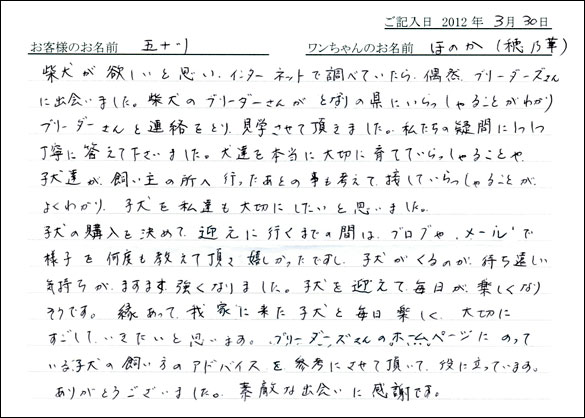 ご記入日 2012年 3月 30日
お客様のお名前 五十川 ワンちゃんのお名前 ほのか(穂乃華)
柴犬が欲しいと思い、インターネットで調べていたら、偶然、ブリーダーズさん
に出会いました。柴犬のブリーダーさんが となりの県にいらっしゃることがわかり
ブリーダーさんと連絡をとり、見学させて頂きました。私たちの疑問に1つ1つ
丁寧に答えて下さいました。犬達を本当に大切に育てていらっしゃることや、
子犬達が、飼い主の所へ行ったあとの事も考えて、接していらっしゃることが、
よくわかり、子犬を私達も大切にしたいと思いました。
子犬の購入を決めて、迎えに行くまでの間は、ブログや、メールで
様子を何度も教えて頂き 嬉しかったですし、子犬がくるのが、待ち遠しい
気持ちが、ますます強くなりました。子犬を迎えて、毎日が、楽しくなり
そうです。縁あって、我家に来た子犬と毎日楽しく、大切に
すごして、いきたいと思います。ブリーダーズさんのホームページにのって
いる子犬の飼い方のアドバイスを参考にさせて頂いて、役に立っています。
ありがとうございました。素敵な出会いに感謝です。